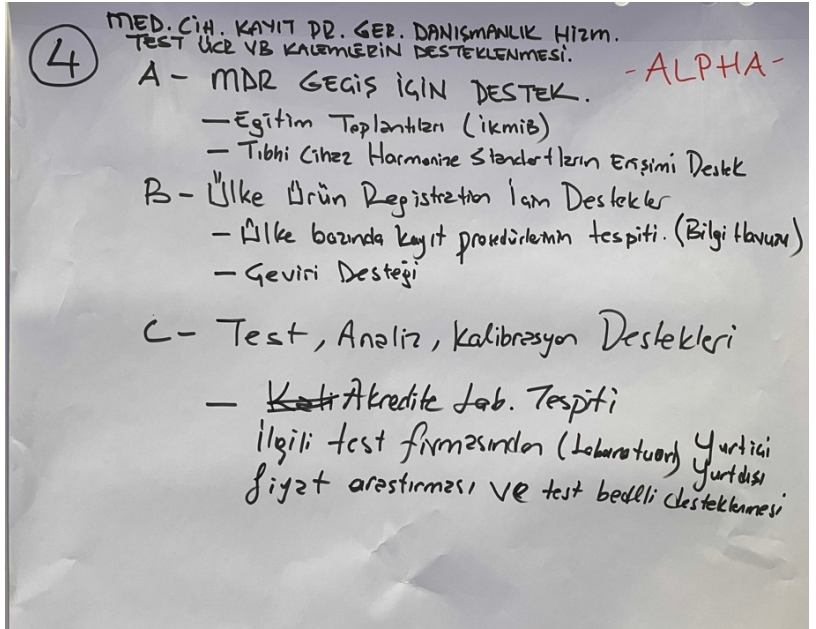 4
MED. CİH. KAYIT PR. GER. DANIŞMANLIK HİZM.
TEST ÜCR VB KALEMLERİN DESTEKLENMESİ.
-ALPHA-
A- MDR GEÇİŞ İÇİN DESTEK.
- Eğitim Toplantıları (İKMİB)
- Tıbbi Cihaz Harmonize Standartların Erişimi Destek
B- Ülke Ürün Registration İçin Destekler
- Ülke bazında kayıt prosedürlerinin tespiti. (Bilgi Havuzu)
- Çeviri Desteği
C- Test, Analiz, Kalibrasyon Destekleri
- Akredite Lab. Tespiti
İlgili test firmasından (Laboratuar) Yurtiçi
Yurtdışı
fiyat araştırması ve test bedeli desteklenmesi